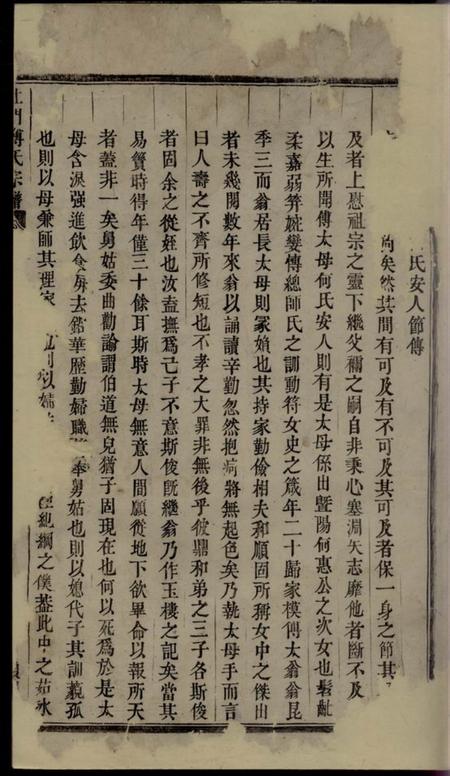 氏安人節傳
矣然其間有可及有不可及其可及者保一身之節其
及者上慰祖宗之靈下繼父禰之嗣自非秉心塞淵矢志靡他者斷不及
以生所聞傅太母何氏安人則有是太母係出暨陽何惠公之次女也髫齓
柔嘉弱笄婉孌傳總師氏之訓動符女史之箴年二十歸家模傅太翁翁昆
季三而翁居長太母則冢娘也其持家勤儉相夫和順固所稱女中之傑出
者未幾閱數年來翁以誦讀辛勤忽然抱病將無起色矣乃執太母手而言
曰人壽之不齊所修短也不孝之大罪非無後乎彼鼎和弟之三子各斯俊
者固余之從姪也汝盍撫爲己子不意斯俊旣繼翁乃作玉樓之記矣當其
易簀時得年僅三十餘耳斯時太母無意人間願從地下欲畢命以報所天
者蓋非一矣舅姑委曲勸諭謂伯道無兒猶子固現在也何以死爲於是太
母含淚强進飲食屏去鉛華歷勤婦職奉舅姑也則以媳代子其訓藐孤
也則以母兼師其理家 紀綱之僕蓋此中之茹冰
傅氏宗譜